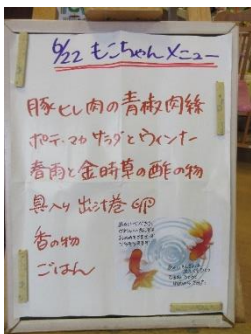 6/22 もこちゃんメニュー
豚ヒレ肉の青椒肉絲
ポテ・マカサラダとウィンナー
春雨と金時草の酢の物
具入り出汁巻卵
香の物
ごはん